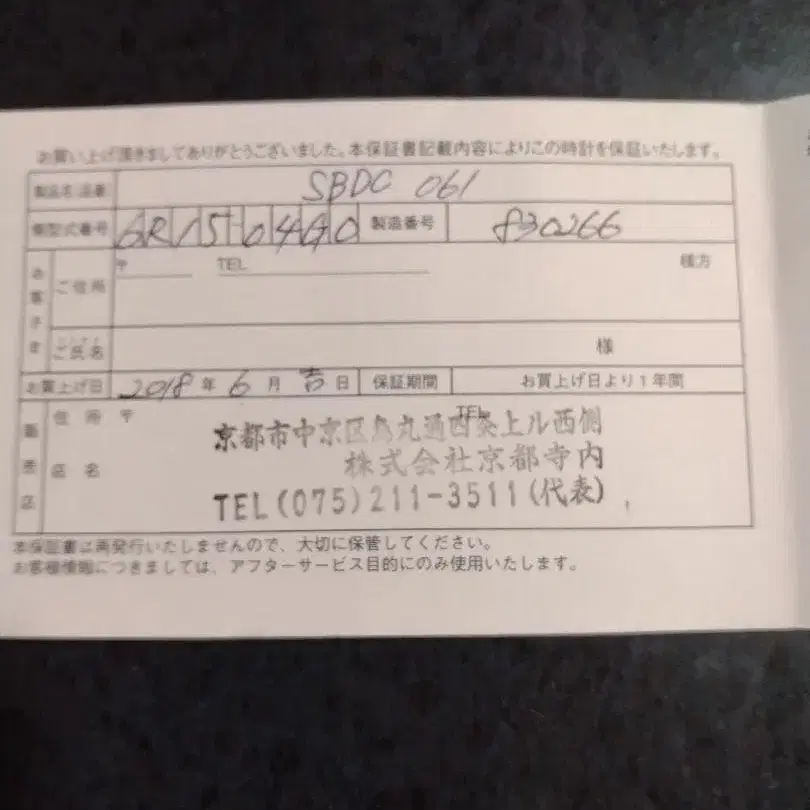 お買い上げ頂きましてありがとうございました。本保証書記載内容によりこの時計を保証いたします。
製品名・品番 SBDC 061
側型式番号 6R15-04G0 製造番号 830266
お客さま
ご住所 〒 TEL 様方
ご氏名 様
お買上げ日 2018 年 6 月 吉 日 保証期間 お買上げ日より1年間
販売店
住所 〒 TEL
京都市中京区烏丸通四条上ル西側
店名 株式会社京都寺内
TEL(075)211-3511(代表)
本保証書は再発行いたしませんので、大切に保管してください。
お客様情報につきましては、アフターサービス目的にのみ使用いたします。